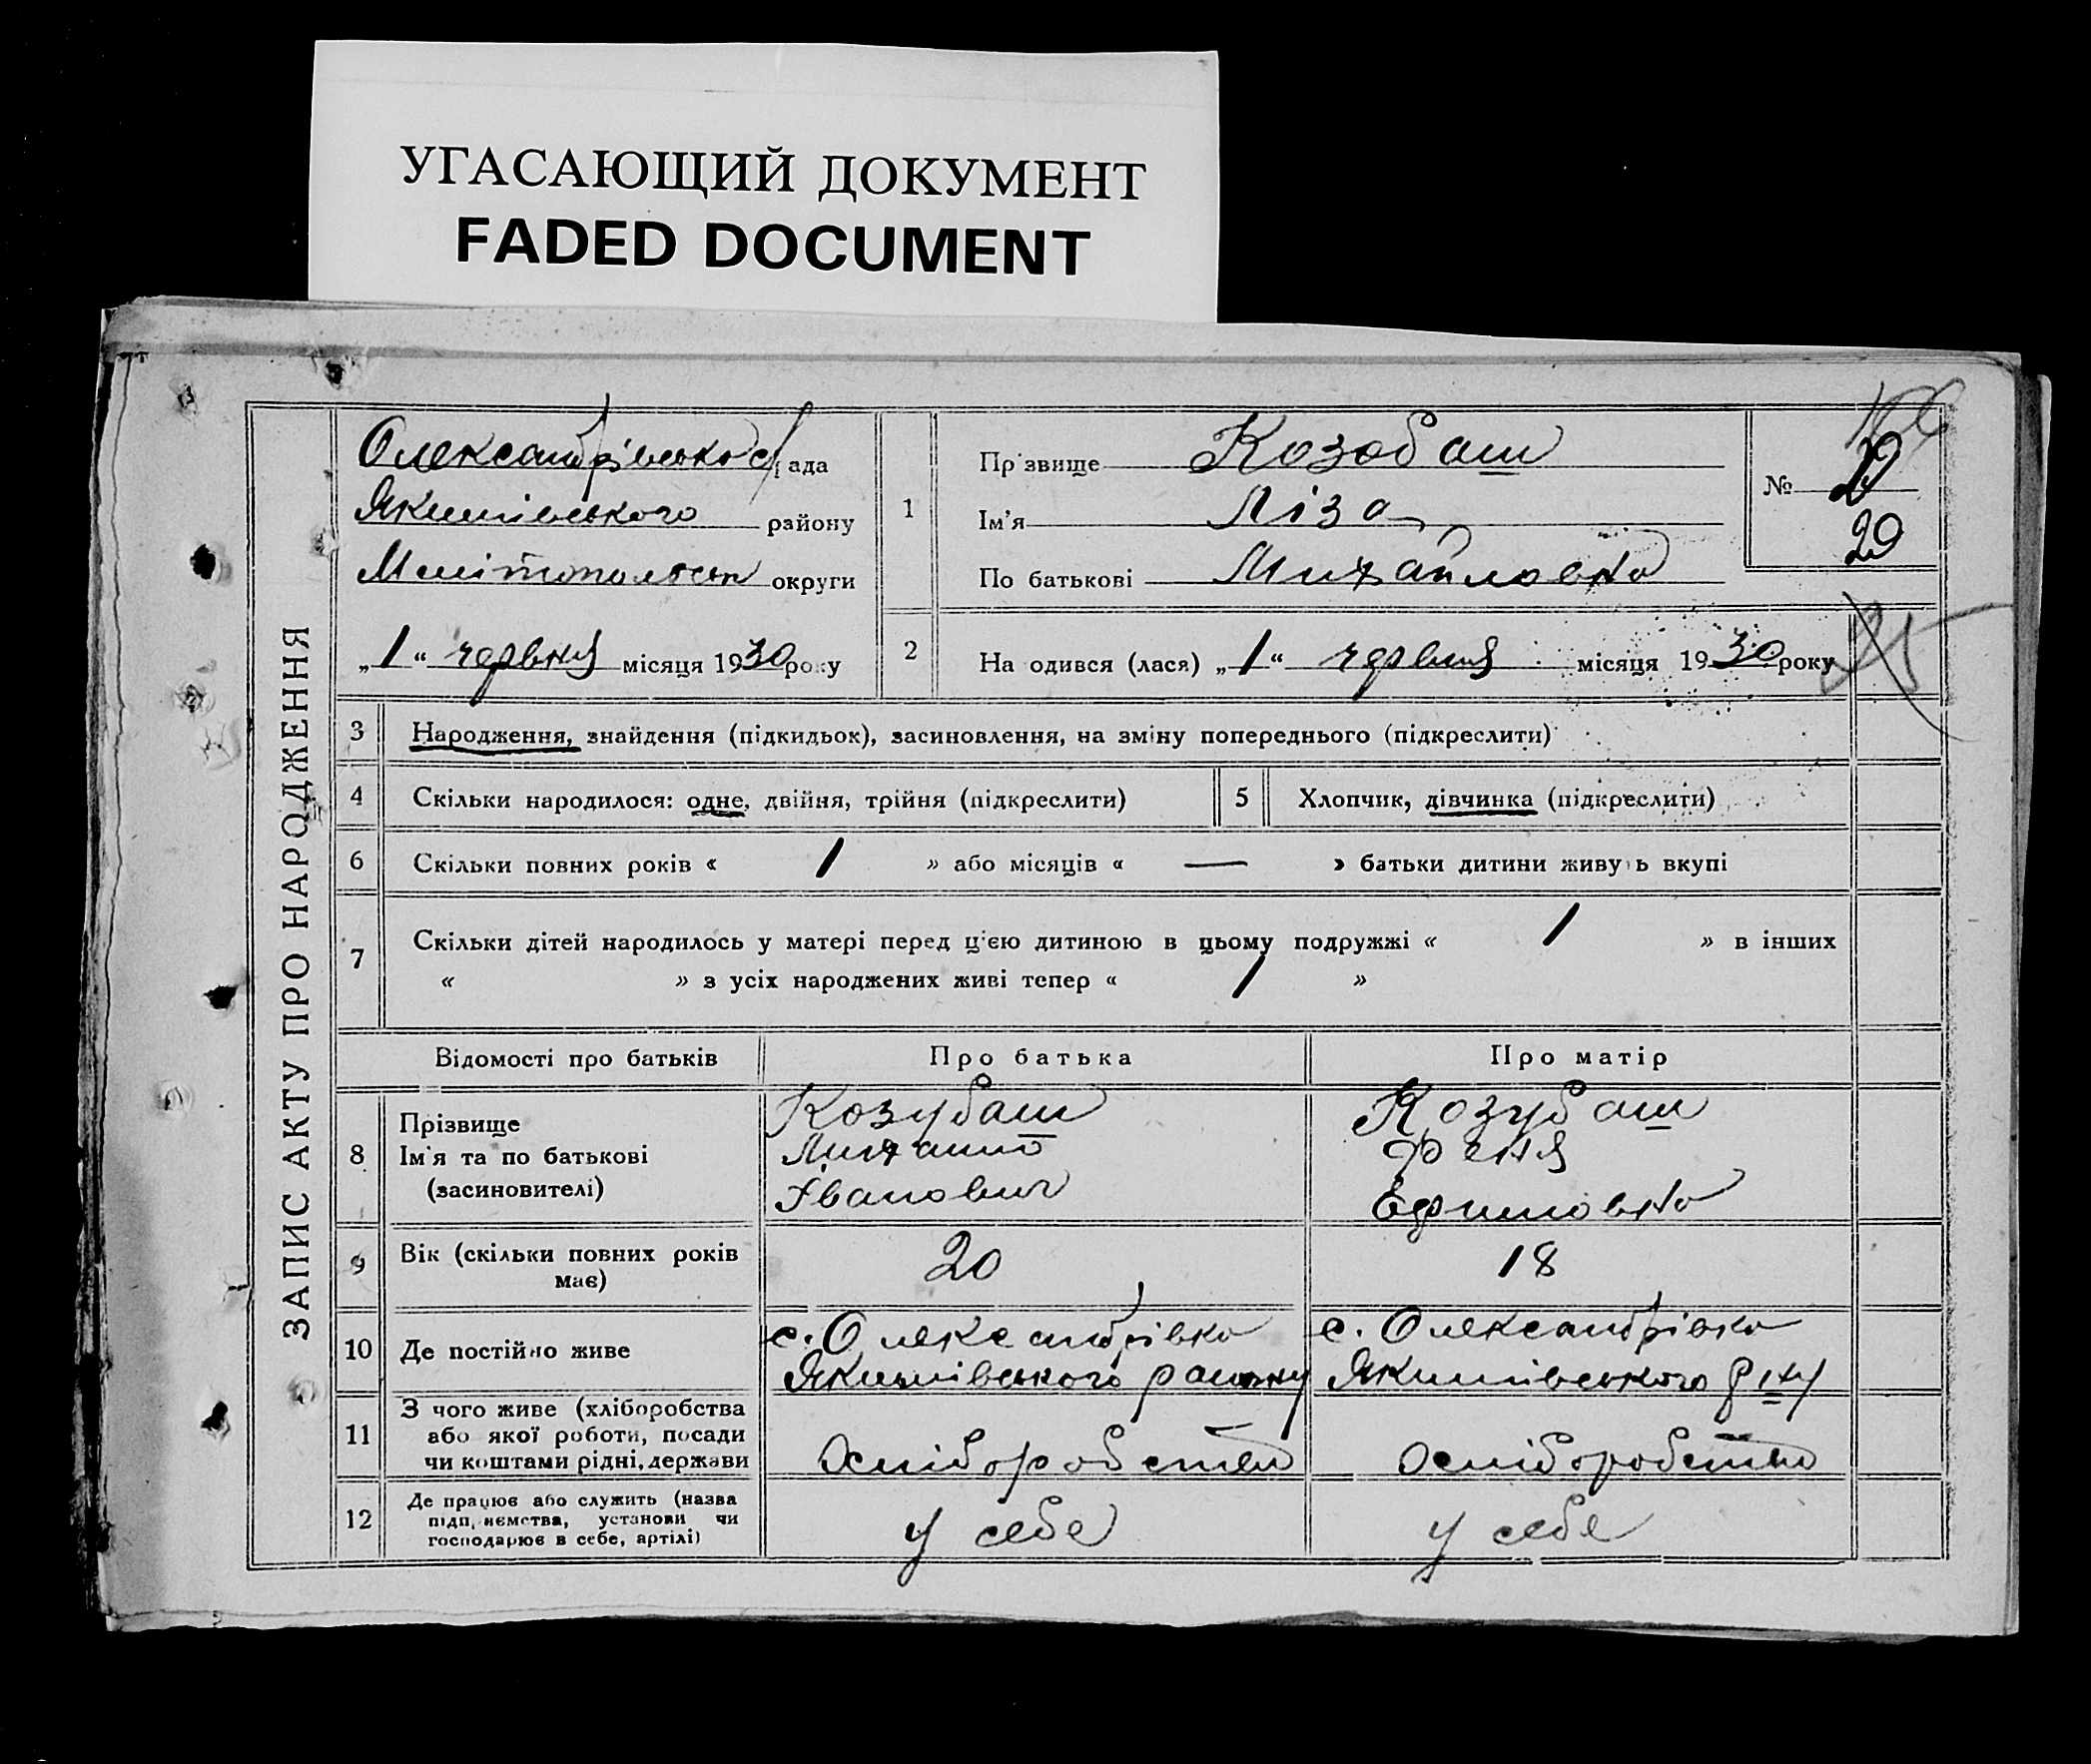 УГАСАЮЩИЙ ДОКУМЕНТ
FADED DOCUMENT
ЗАПИС АКТУ ПРО НАРОДЖЕННЯ
Олександрівсько с/рада
Якимівського району
Мелітопольськ округи
„1“ червня місяця 1930 року
1
Прізвище Козобаш
Ім'я Ліза
По батькові Михайловна
№ 29
29
2 Народився (лася) „1“ червня місяця 1930 року
3 Народження, знайдення (підкидьок), засиновлення, на зміну попереднього (підкреслити)
4 Скільки народилося: одне, двійня, трійня (підкреслити) 5 Хлопчик, дівчинка (підкреслити)
6 Скільки повних років « 1 » або місяців « — » батьки дитини живуть вкупі
7 Скільки дітей народилось у матері перед цією дитиною в цьому подружжі « 1 » в інших
« » з усіх народжених живі тепер « 1 »
Відомості про батьків Про батька Про матір
8
Прізвище Козубаш Козубаш
Ім'я та по батькові Михайло Феня
(засновителі) Іванович Ефимовна
9 Вік (скільки повних років має) 20 18
10 Де постійно живе
с. Олександрівка с. Олександрівка
Якимівського району Якимівського р-ну
11 З чого живе (хліборобства
або якої роботи, посади
чи коштами рідні, держави
хліборобство хліборобство
12 Де працює або служить (назва
підприємства, установи чи
господарює в себе, артілі)
у себе у себе